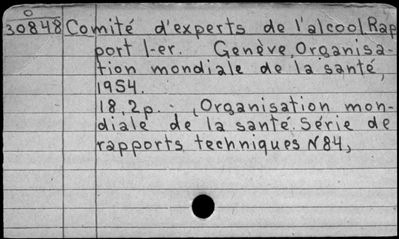 O
30848 Comité d'experts de l'alcool. Rap
port 1-er. Genève, Organisa-
tion mondiale de la santé,
1954.
18, 2p. - (Organisation mon-
diale de la santé. Série de
rapports techniques N84,